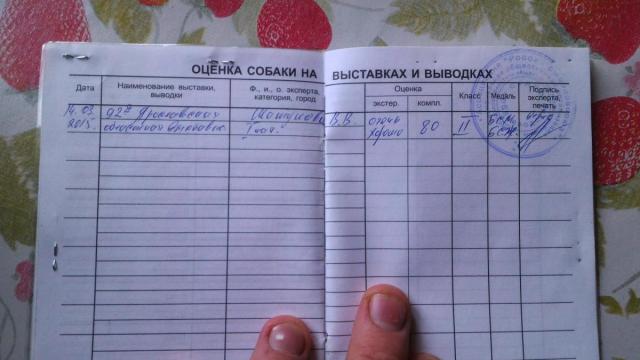 ОЦЕНКА СОБАКИ НА ВЫСТАВКАХ И ВЫВОДКАХ
Дата
Наименование выставки, выводки
Ф., и., о. эксперта, категория, город
Оценка
экстер.
компл.
Класс
Медаль
Подпись эксперта, печать
14.03. 92я Ярославская В.В. очень 80 II БСМ
2015. областная выставка I кат. хорошо